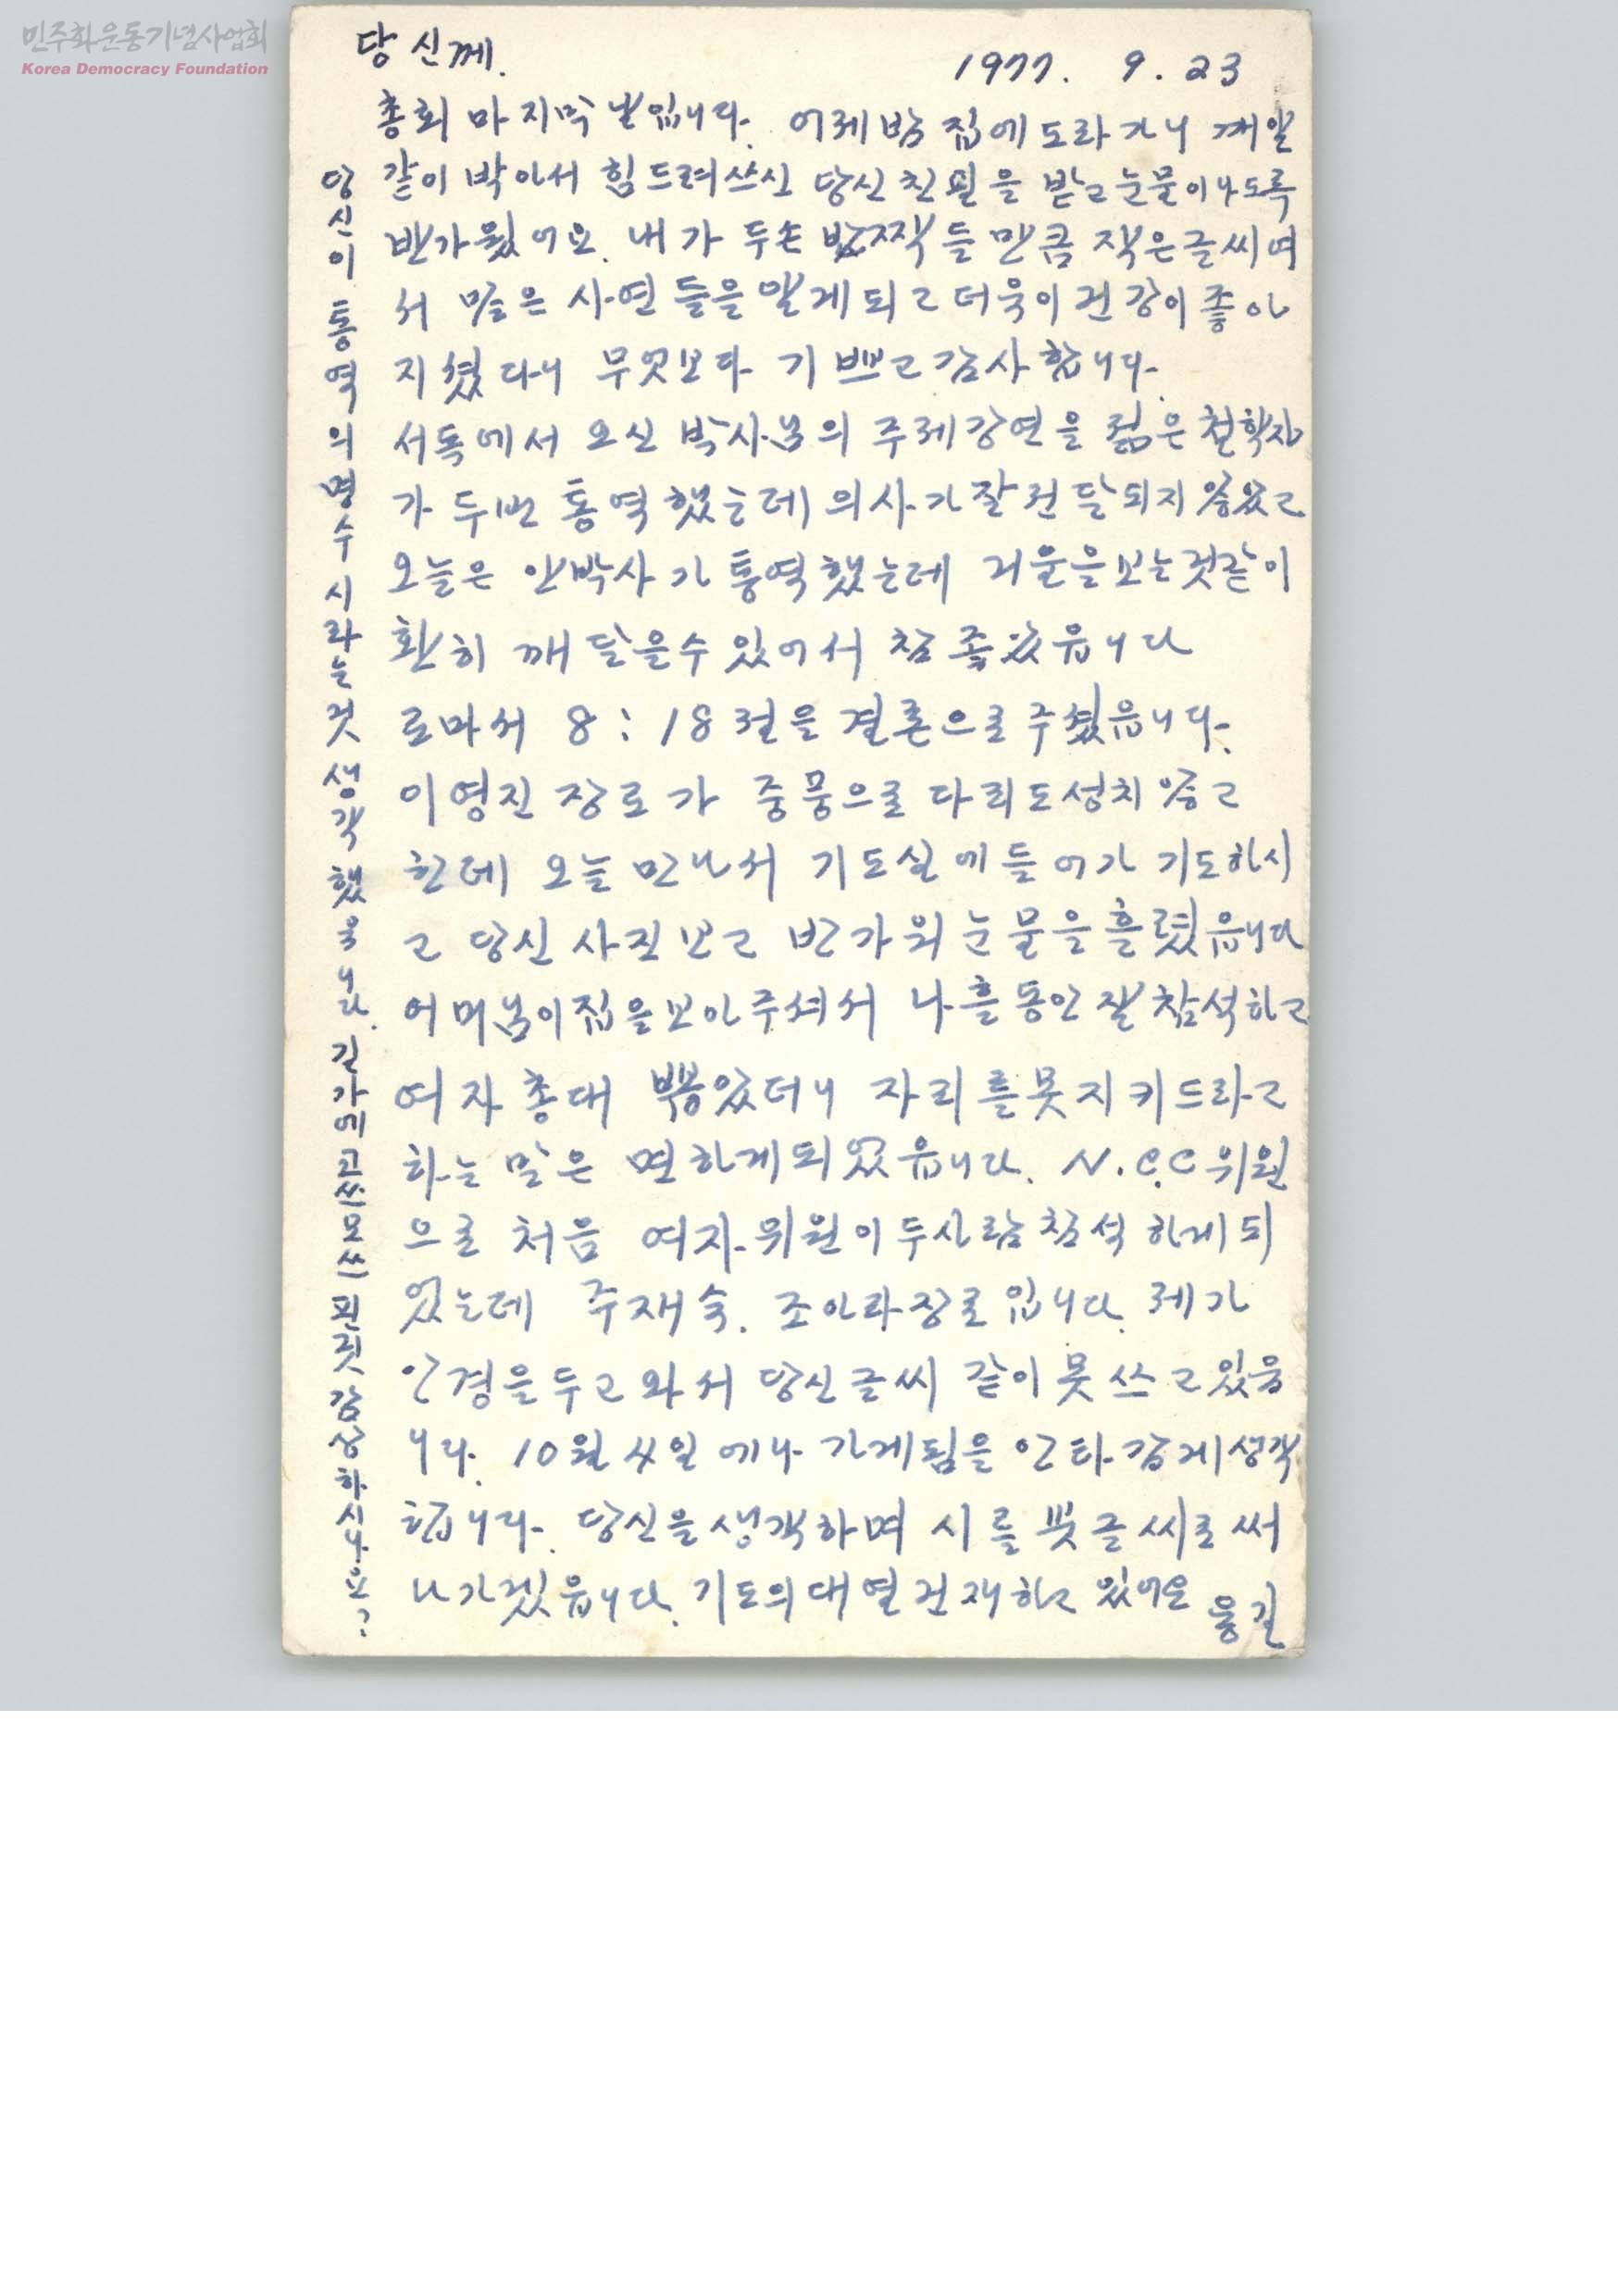 민주화운동기념사업회
Korea Democracy Foundation
당신께.
1977. 9. 23
총회 마지막 날입니다. 어제밤 집에 도라가니 깨알
같이 박아서 힘드려쓰신 당신 친필을 받고 눈물이나도록
반가웠어요. 내가 두손 바짝들 만큼 작은글씨여
서 많은 사연들을 알게되고 더욱이 건강이 좋아
지셨다니 무엇보다 기쁘고 감사합니다.
서독에서 오신 박사님의 주제강연을 젊은 철학자
가 두번 통역했는데 의사가 잘 전달되지 않았고
오늘은 안박사가 통역했는데 거울을 보는것같이
환히 깨달을수 있어서 참 좋았읍니다
로마서 8:18절을 결론으로 주셨읍니다.
이영진 장로가 중풍으로 다리도 성치 않고
한데 오늘 만나서 기도실에 들어가 기도하시
고 당신 사진 보고 반가워 눈물을 흘렸읍니다
어머님이 집을 보아주셔서 나흘동안 잘 참석하고
여자 총대 뽑았더니 자리를 못지키드라고
하는 말은 면하게 되었읍니다. N.C.C 위원
으로 처음 여자 위원이 두사람 참석하게 되
었는데 주재숙. 조아라장로입니다. 제가
안경을 두고 와서 당신글씨 같이 못 쓰고있읍
니다. 10월 4일에나 가게됨을 안타깝게 생각
합니다. 당신을 생각하며 시를 붓글씨로 써
나가겠읍니다. 기도의 대열 건재하고 있어요 용길
당신이 통역의 명수시라는 것 생각했읍니다. 길가에 코쓰모쓰 핀것 감상하시나요?